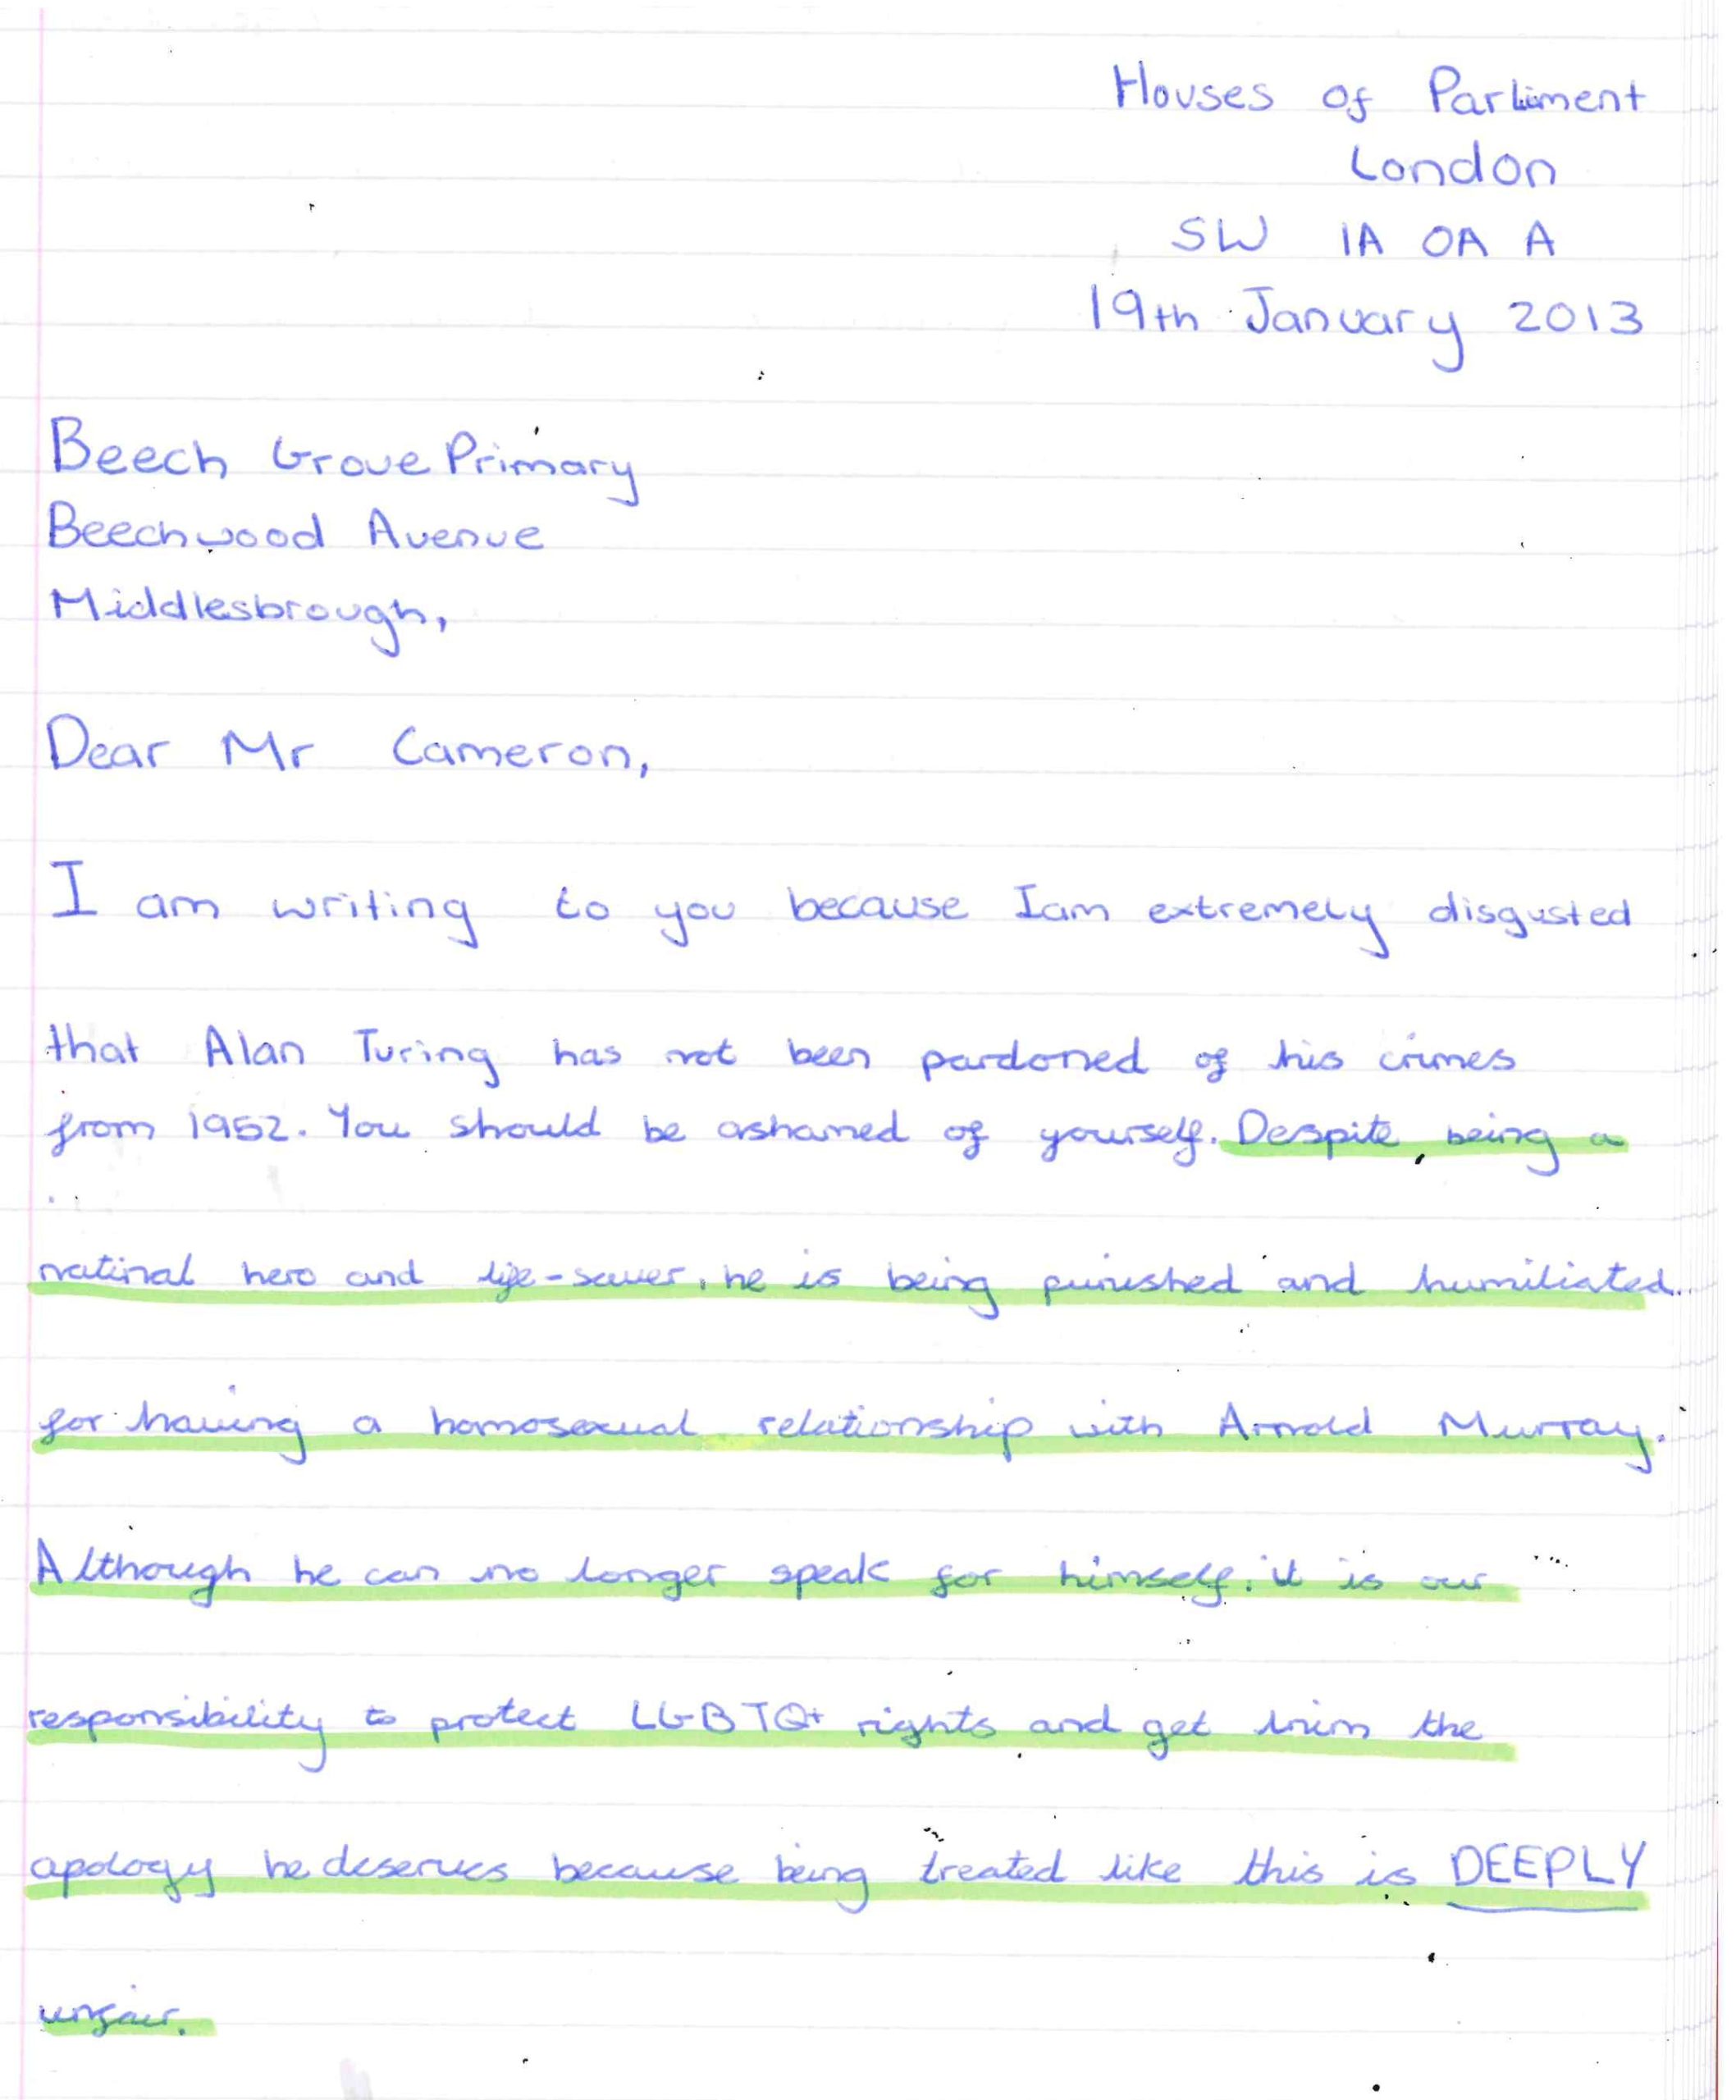 Houses of Parliment
London
SW 1A 0A A
19th January 2013
Beech Grove Primary
Beechwood Avenue
Middlesbrough,
Dear Mr Cameron,
I am writing to you because Iam extremely disgusted
that Alan Turing has not been pardoned of his crimes
from 1952. You should be ashamed of yourself. Despite being a
natinal hero and life-saver, he is being punished and humiliated
for having a homosexual relationship with Arnold Murray.
Although he can no longer speak for himself, it is our
responsibility to protect LGBTQ+ rights and get him the
apology he deserves because being treated like this is DEEPLY
unfair.